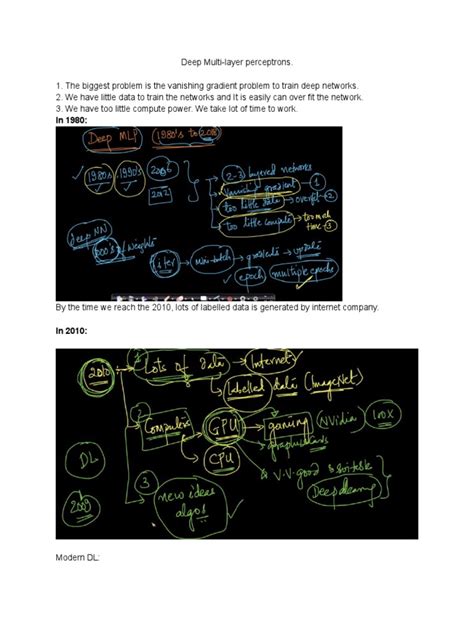 Deep Multi-layer perceptrons.
1. The biggest problem is the vanishing gradient problem to train deep networks.
2. We have little data to train the networks and It is easily can over fit the network.
3. We have too little compute power. We take lot of time to work.
In 1980:
Deep MLP (1980's to 2000's)
1980's, 1990's 2006
2012
2-3 layered networks
Vanishing gradient 1
too little data overfit 2
too little compute too much
time 3
deep NN
1000's of weights
iter mini-batch gradients update
epoch multiple epochs
By the time we reach the 2010, lots of labelled data is generated by internet company.
In 2010:
2010 1 Lots of Data Internet
labelled data (ImageNet)
2 Computers GPU gaming (NVidia) 100X
graphics cards
CPU
V.V. good & suitable
Deep learning
DL
3 new ideas
algos
2009
Modern DL: